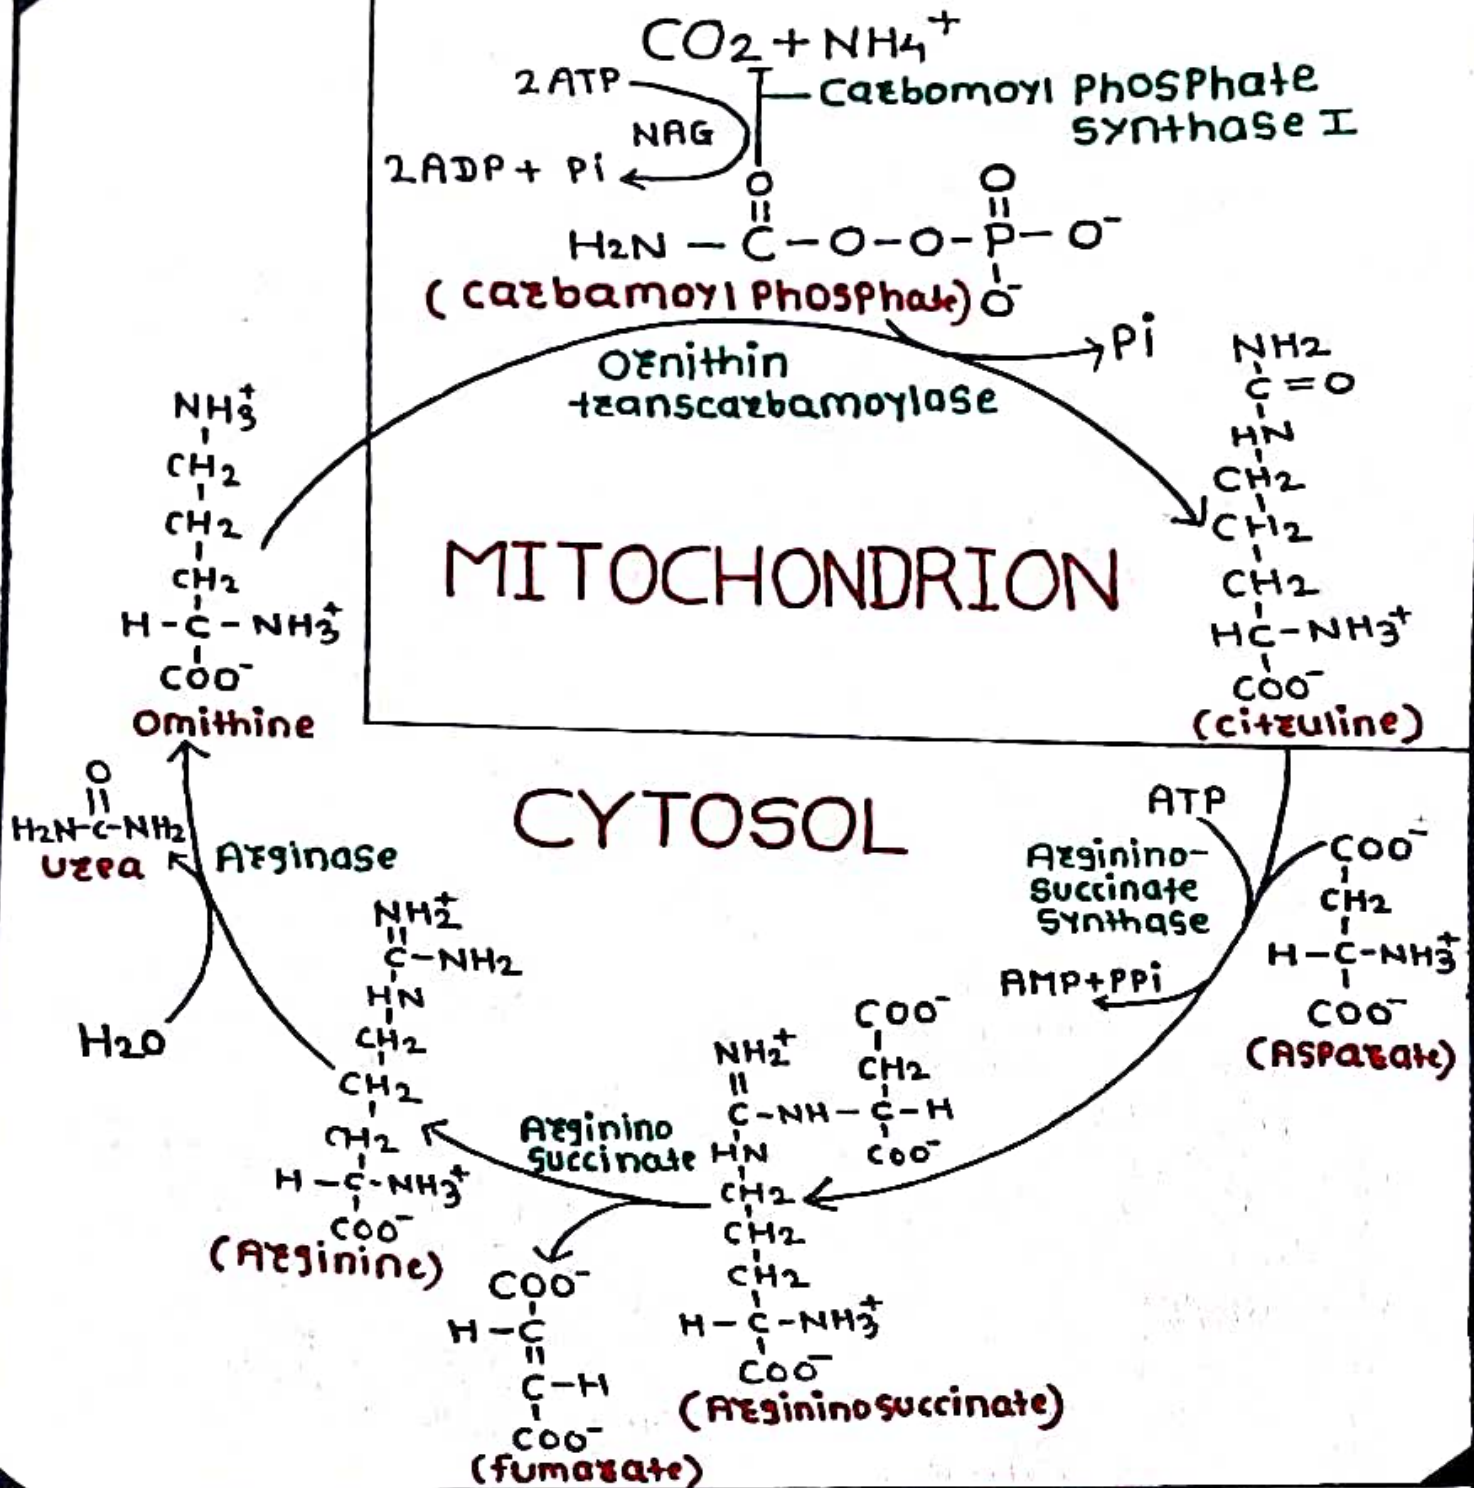 CO2 + NH4+
2 ATP
Carbomoyl Phosphate
synthase I
NAG
2ADP + Pi
O
||
H2N — C — O — O — P — O-
O
||
O-
(Carbamoyl Phosphate)
Pi
Ornithin
transcarbamoylase
NH3+
CH2
CH2
CH2
H - C - NH3+
COO-
Ornithine
NH2
C = O
HN
CH2
CH2
CH2
HC - NH3+
COO-
(citruline)
MITOCHONDRION
CYTOSOL
O
||
H2N-C-NH2
urea
Arginase
H2O
ATP
Arginino-
Succinate
Synthase
AMP+PPi
COO-
CH2
H-C-NH3+
COO-
(Asparate)
NH2+
||
C-NH2
HN
CH2
CH2
CH2
H-C-NH3+
COO-
(Arginine)
Arginino
Succinate
COO-
CH2
NH2+
||
C-NH-C-H
HN
COO-
CH2
CH2
CH2
H-C-NH3+
COO-
(Argininosuccinate)
COO-
H-C
||
C-H
COO-
(fumarate)